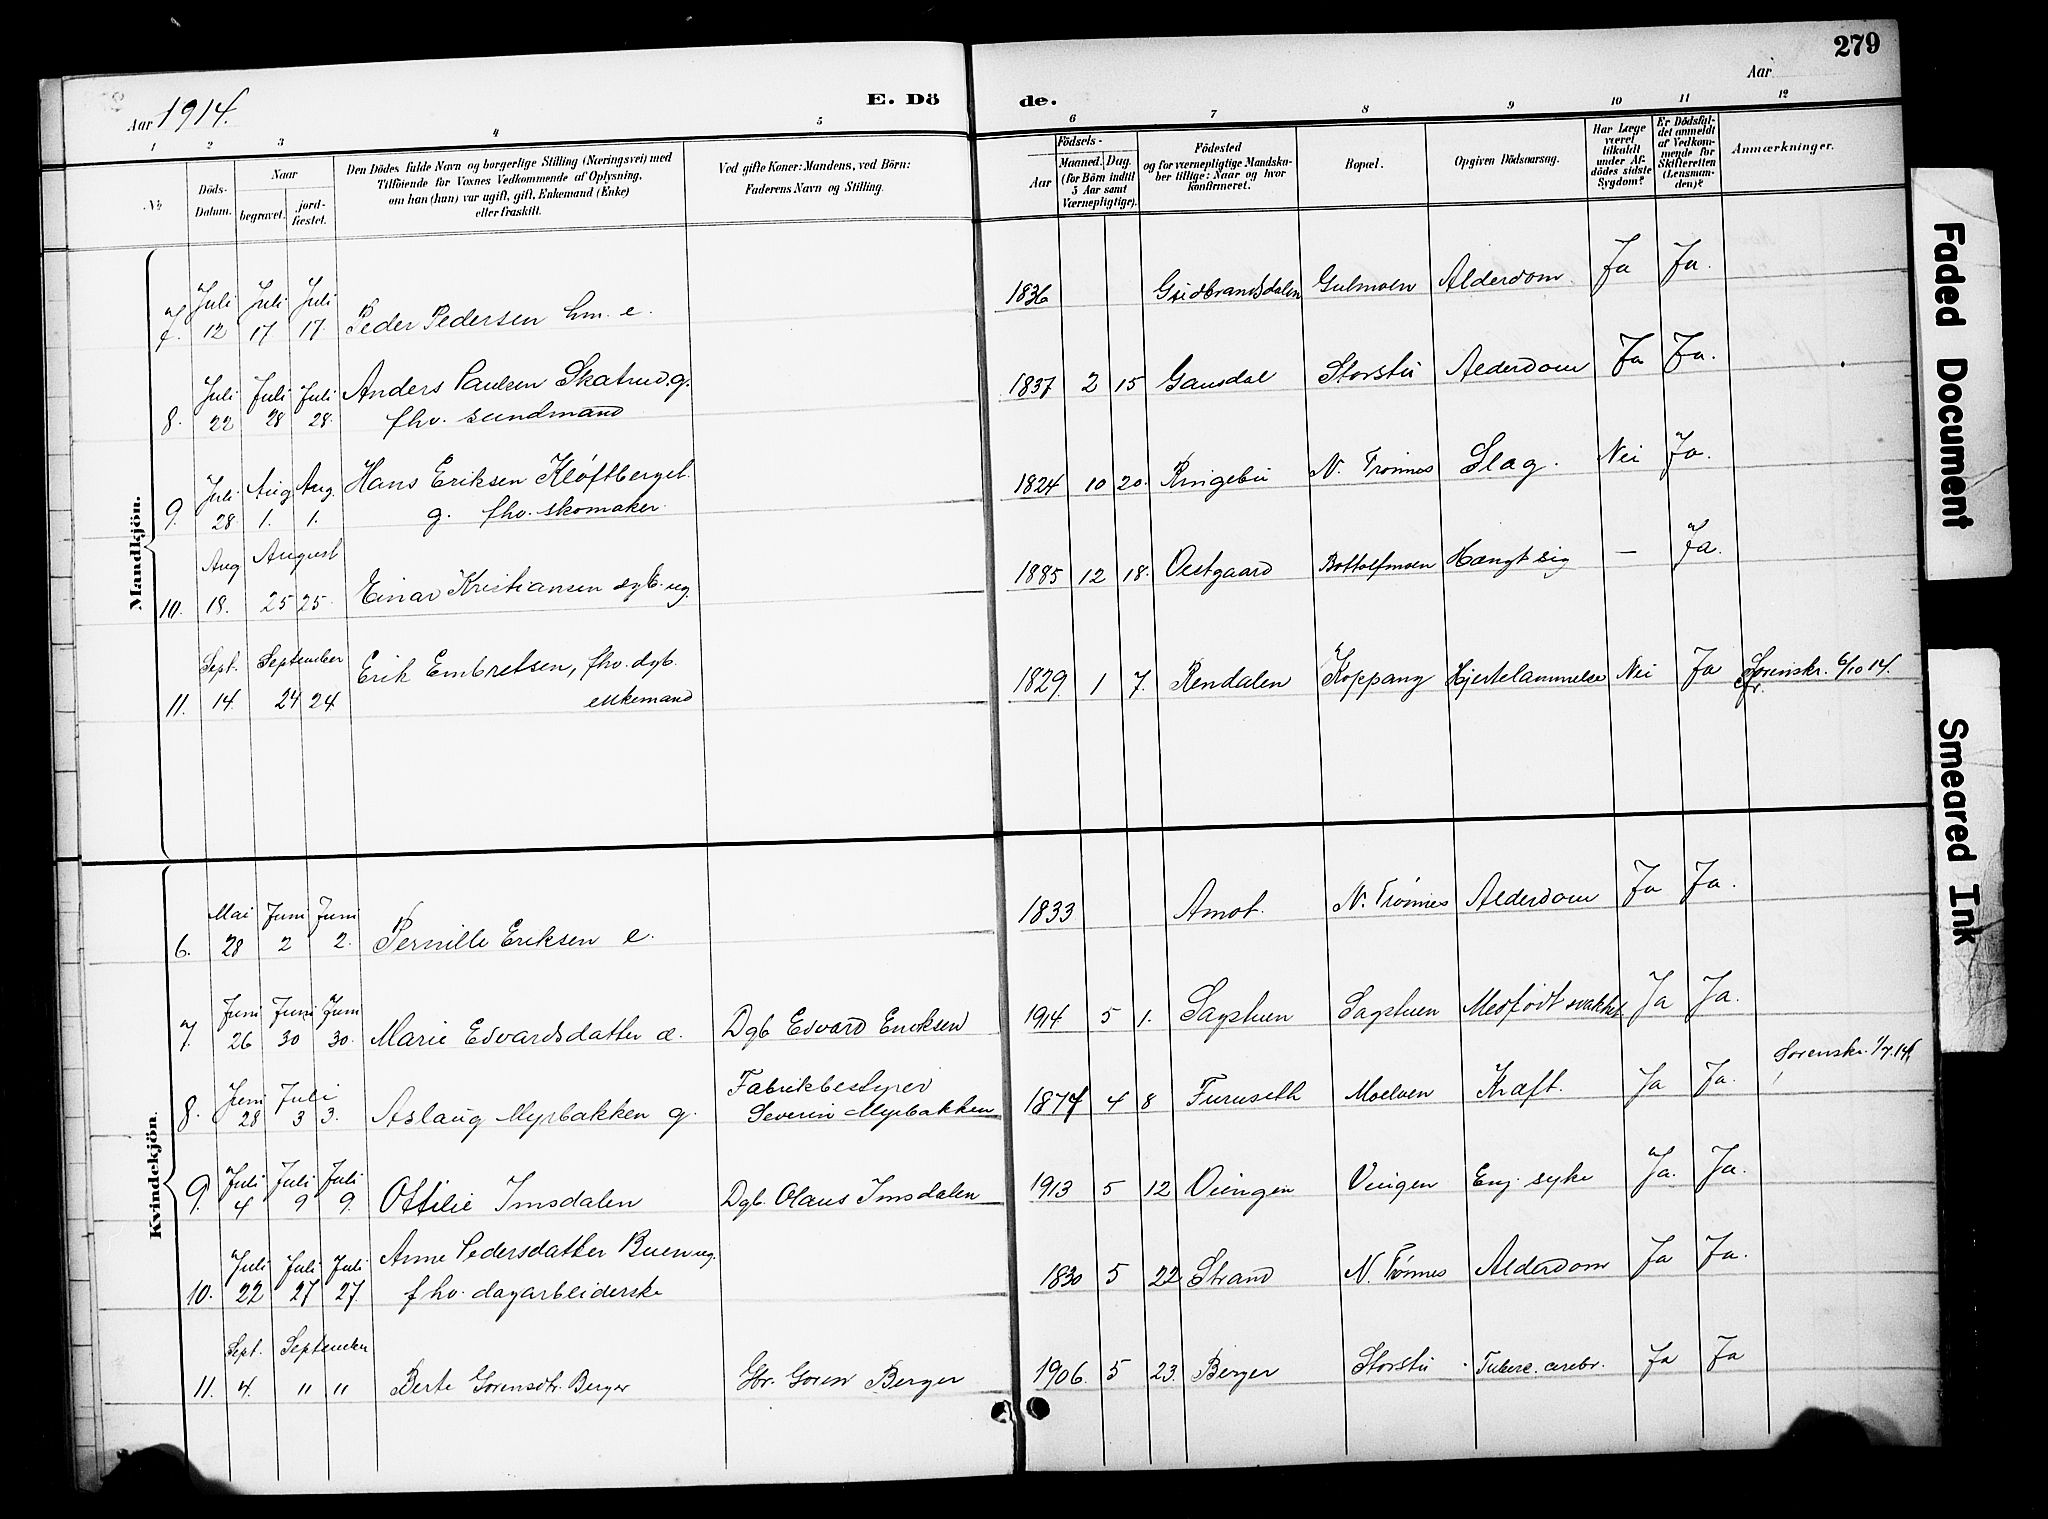 279
Aar 1914.
E. Dö
de.
Aar
1 2 3 4 5
6 7 8 9 10 11 12
No
Döds-Datum.
Naar
begravet.
jord-fæstet.
Den Dödes fulde Navn og borgerlige Stilling (Næringsvei) med
Tilföiende for Voxnes Vedkommende af Oplysning,
om han (hun) var ugift, gift, Enkemand (Enke)
eller fraskilt.
Ved gifte Koner: Mandens, ved Börn:
Faderens Navn og Stilling.
Födsels-
Aar
Maaned. Dag.
(for Börn indtil
5 Aar samt
Værnepligtige).
Födested
og for værnepligtige Mandska-
ber tillige: Naar og hvor
konfirmeret.
Bopæl.
Opgiven Dödsaarsag.
Har Læge
været
tilkaldt
under Af-
dödes sidste
Sygdom?
Er Dödsfal-
det anmeldt
af Vedkom-
mende for
Skifteretten
(Lensman-
den)?
Anmærkninger.
Mandkjön.
7. Juli 12 Juli 17 Juli 17. Peder Pedersen hm. e. 1836 Gudbrandsdalen Gulmoen Alderdom. Ja Ja.
8. Juli 22 Juli 28 Juli 28. Anders Paulsen Skatrud. g.
fhv. sundmand 1837 2 15 Gausdal Storstu Alderdom Ja Ja.
9. Juli 28. Aug 1. Aug. 1. Hans Eriksen Kløftberget.
g. fhv. skomaker. 1824 10 20. Ringebu N. Trønnes Slag. Nei Ja.
10. Aug 18. August 25 25. Einar Kristiansen dgb. ug. 1885 12 18. Vestgaard Bottolfmoen Hængt sig — Ja.
11. Sept. 14. September 24 24. Erik Embretsen, fhv. dgb.
enkemand 1829 1 7. Rendalen Koppang Hjertelammelse Nei Ja Sorenskr. 6/10 14.
Kvindekjön.
6. Mai 28 Juni 2 Juni 2. Pernille Eriksen e. 1833 Amot. N. Trønnes Alderdom Ja Ja.
7. Juni 26 Juni 30 Juni 30. Marie Edvardsdatter æ. Dgb Edvard Eriksen 1914 5 1. Sagstuen Sagstuen Medfødt svakhet Ja Ja.
8. Juni 28 Juli 3 3. Aslaug Myrbakken g. Fabrikbestyrer
Severin Myrbakken 1874 4 8 Furuseth Moelven Kræft. Ja Ja. Sorenskr. 1/7.14.
9. Juli 4 Juli 9 Juli 9. Ottilie Imsdalen Dgb. Olaus Imsdalen 1913 5 12 Vingen Vingen Eng. syke Ja. Ja.
10. Juli 22 Juli 27 Juli 27 Anne Pedersdatter Buen ug.
fhv. dagarbeiderske 1830 5 22 Strand N. Trønnes Alderdom Ja Ja.
11. Sept. 4. September " " Berte Gorensdtr. Berger Gbr. Goren Berger 1906. 5 23. Berger Storstu Tuberc. cerebr. Ja Ja
Faded Document
Smeared Ink